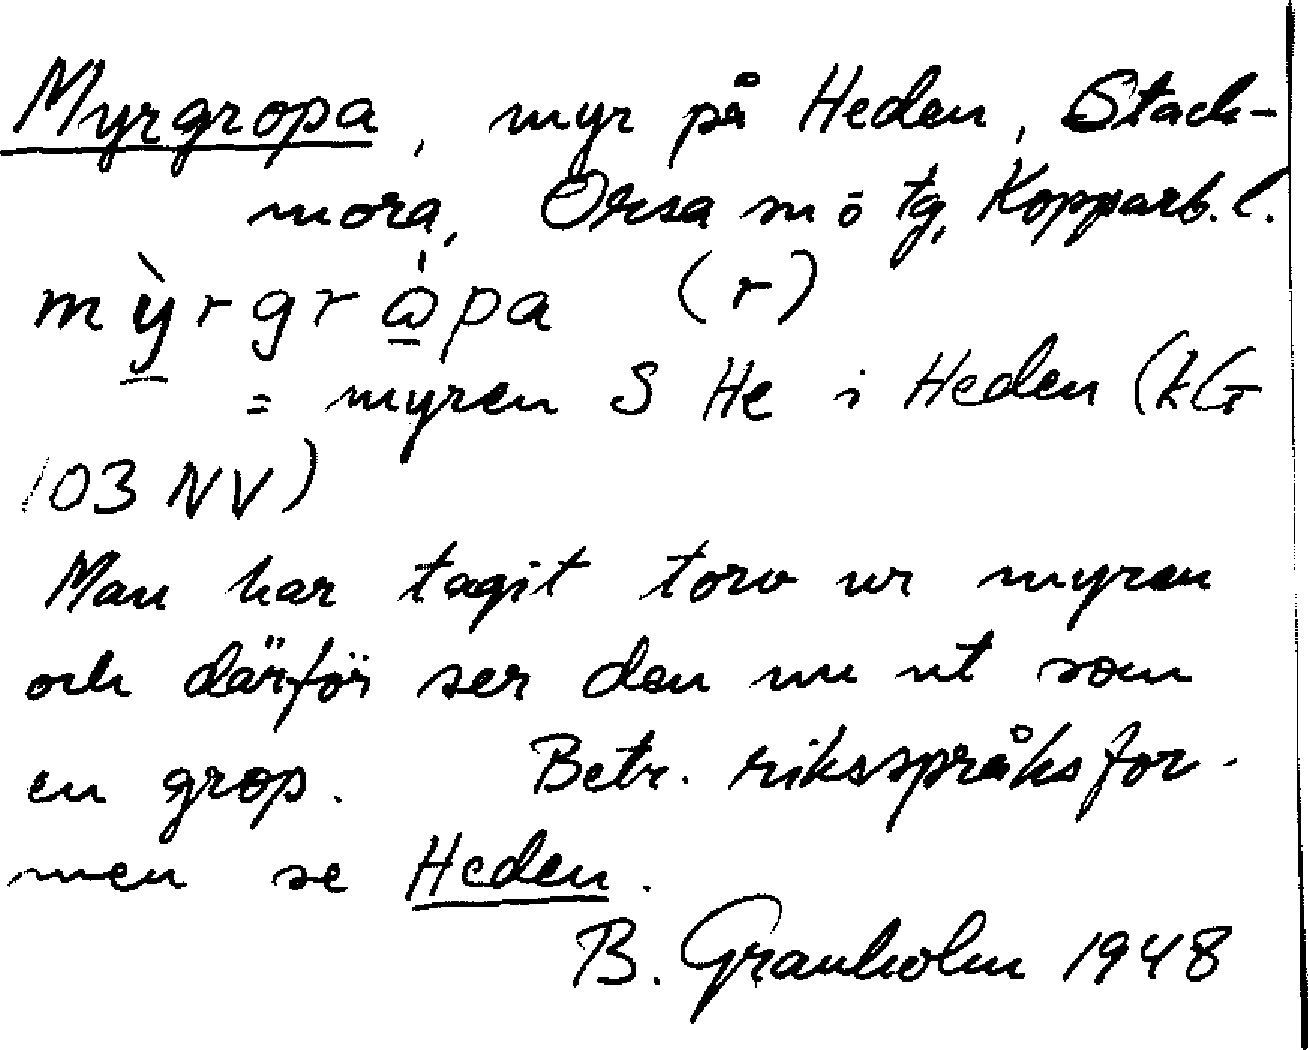 Myrgropa, myr på Heden, Stack-
mora, Orsa sn ö tg, Kopparb. l.
mỳrgrɑ̀pa (r)
= myren S He i Heden (kG
103 NV)
Man har tagit torv ur myren
och därför ser den nu ut som
en grop. Betr. riksspråksfor-
men se Heden.
B. Granholm 1948